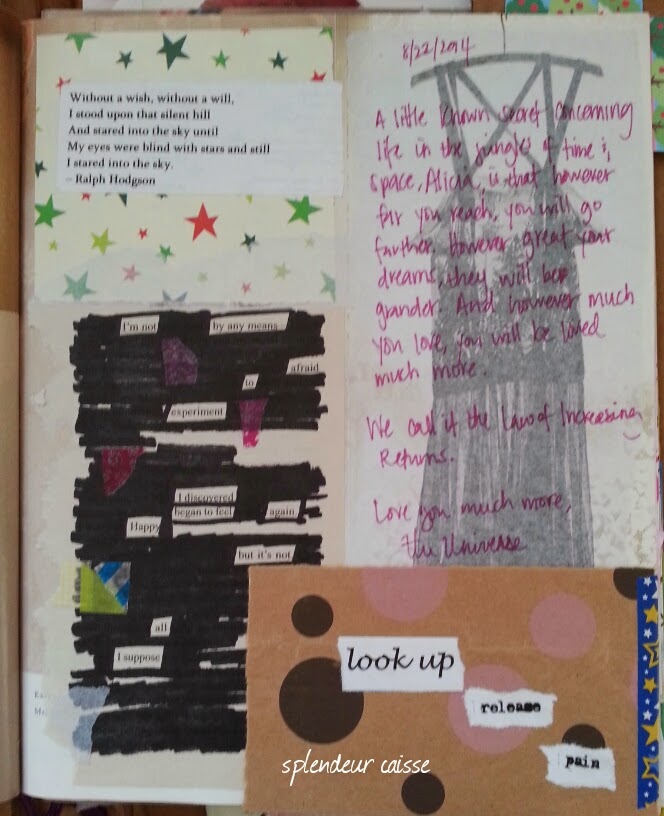 Without a wish, without a will,
I stood upon that silent hill
And stared into the sky until
My eyes were blind with stars and still
I stared into the sky.
– Ralph Hodgson
8/22/2014
A little known secret concerning
life in the jungles of time &
space, Alicia, is that however
far you reach, you will go
farther. However great your
dreams, they will be
grander. And however much
you love, you will be loved
much more.
We call it the Law of Increasing
Returns.
Love you much more,
The Universe
I'm not by any means
afraid
to
experiment
I discovered
began to feel again
Happy
but it's not
all
I suppose
look up
release
pain
splendeur caisse